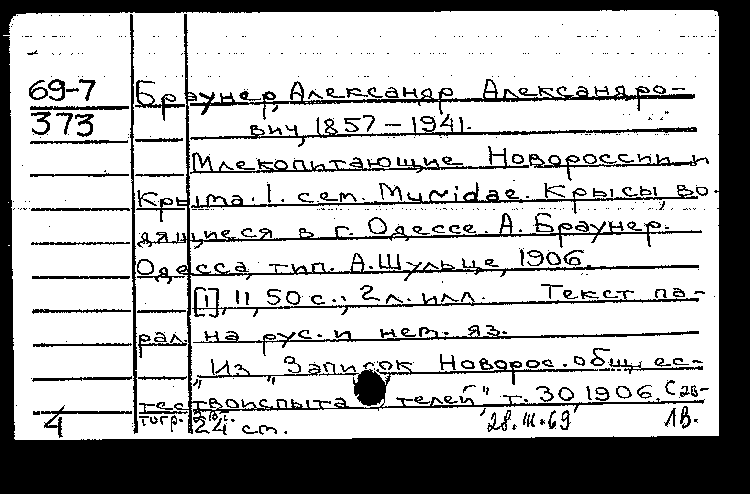 69-7
373
Браунер, Александр Александро-
вич, 1857 – 1941.
Млекопитающие Новороссии и
Крыма. I. сем. Muridae. Крысы, во-
дящиеся в г. Одессе. А. Браунер.
Одесса, тип. А. Шульце, 1906.
[1], II, 50 с.; 2 л. илл. Текст па-
рал. на рус. и нем. яз.
„Из „Записок Новорос. общ. ес-
тествоиспытателей" т. 30 1906. С ав-
тогр. авт.
4 24 см. 28.III.69 ЛВ.